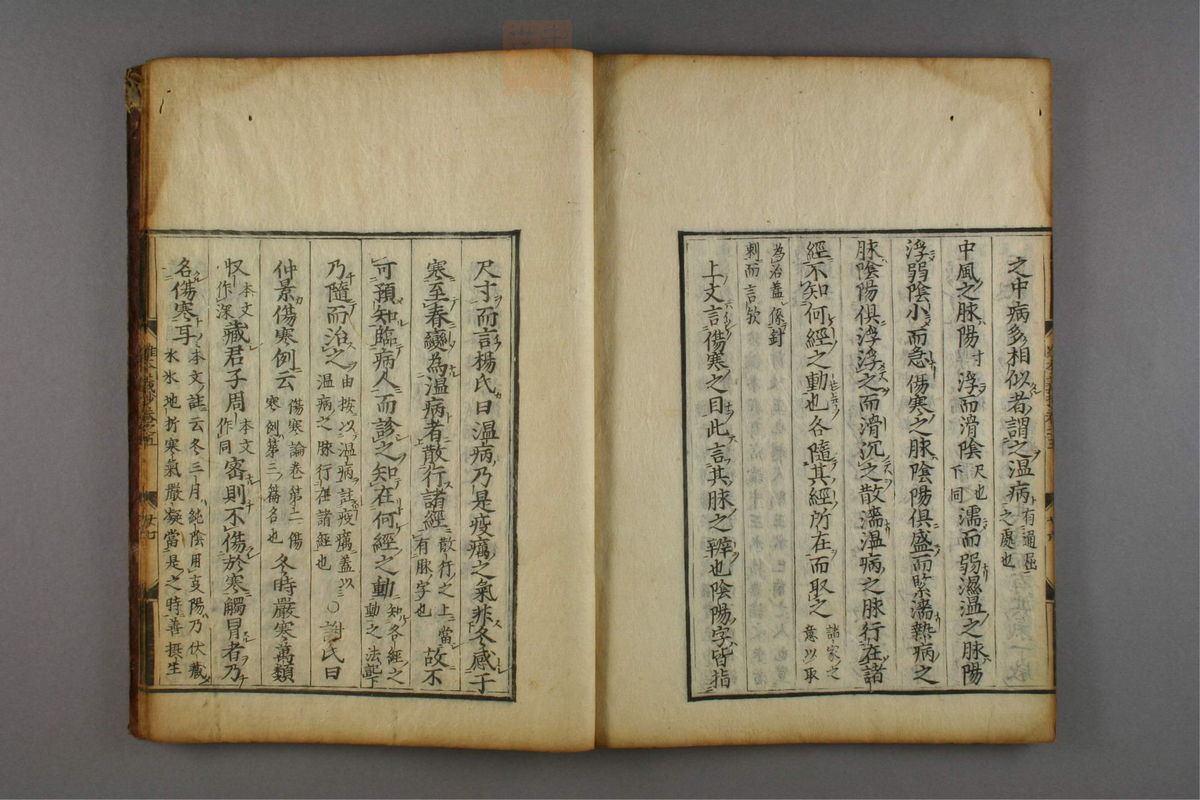 之中病多相似者謂之温病 有通屈之處也
中風之脉陽 寸 浮而滑陰 尺也下同 濡而弱濕温之脉陽
浮弱陰小而急傷寒之脉陰陽俱盛而緊濇熱病之
脉陰陽俱浮浮之而滑沉之散濇温病之脉行在諸
經不知何經之動也各隨其經所在而取之 諸家之意以取
為治蓋係封刺而言欤
上文言傷寒之目此言其脉之辨也陰陽字皆指
尺寸而言楊氏曰温病乃是疫癘之氣非冬感于
寒至春變為温病者散行諸經 散行之上當有脉字也 故不
可預知臨病人而診之知在何經之動 知各經之動之法
乃隨而治之 由按以温病註疫癘蓋以温病之脉行在諸經也 ○謝氏曰
仲景傷寒例云 傷寒論卷第二傷寒例第三篇名也 冬時嚴寒萬類
収 本文作深 藏君子周 本文作同 密則不傷於寒觸冒者乃
名傷寒耳 本文註云冬三月純陰用支陽乃伏藏水氷地折寒氣散凝當是之時善摂生